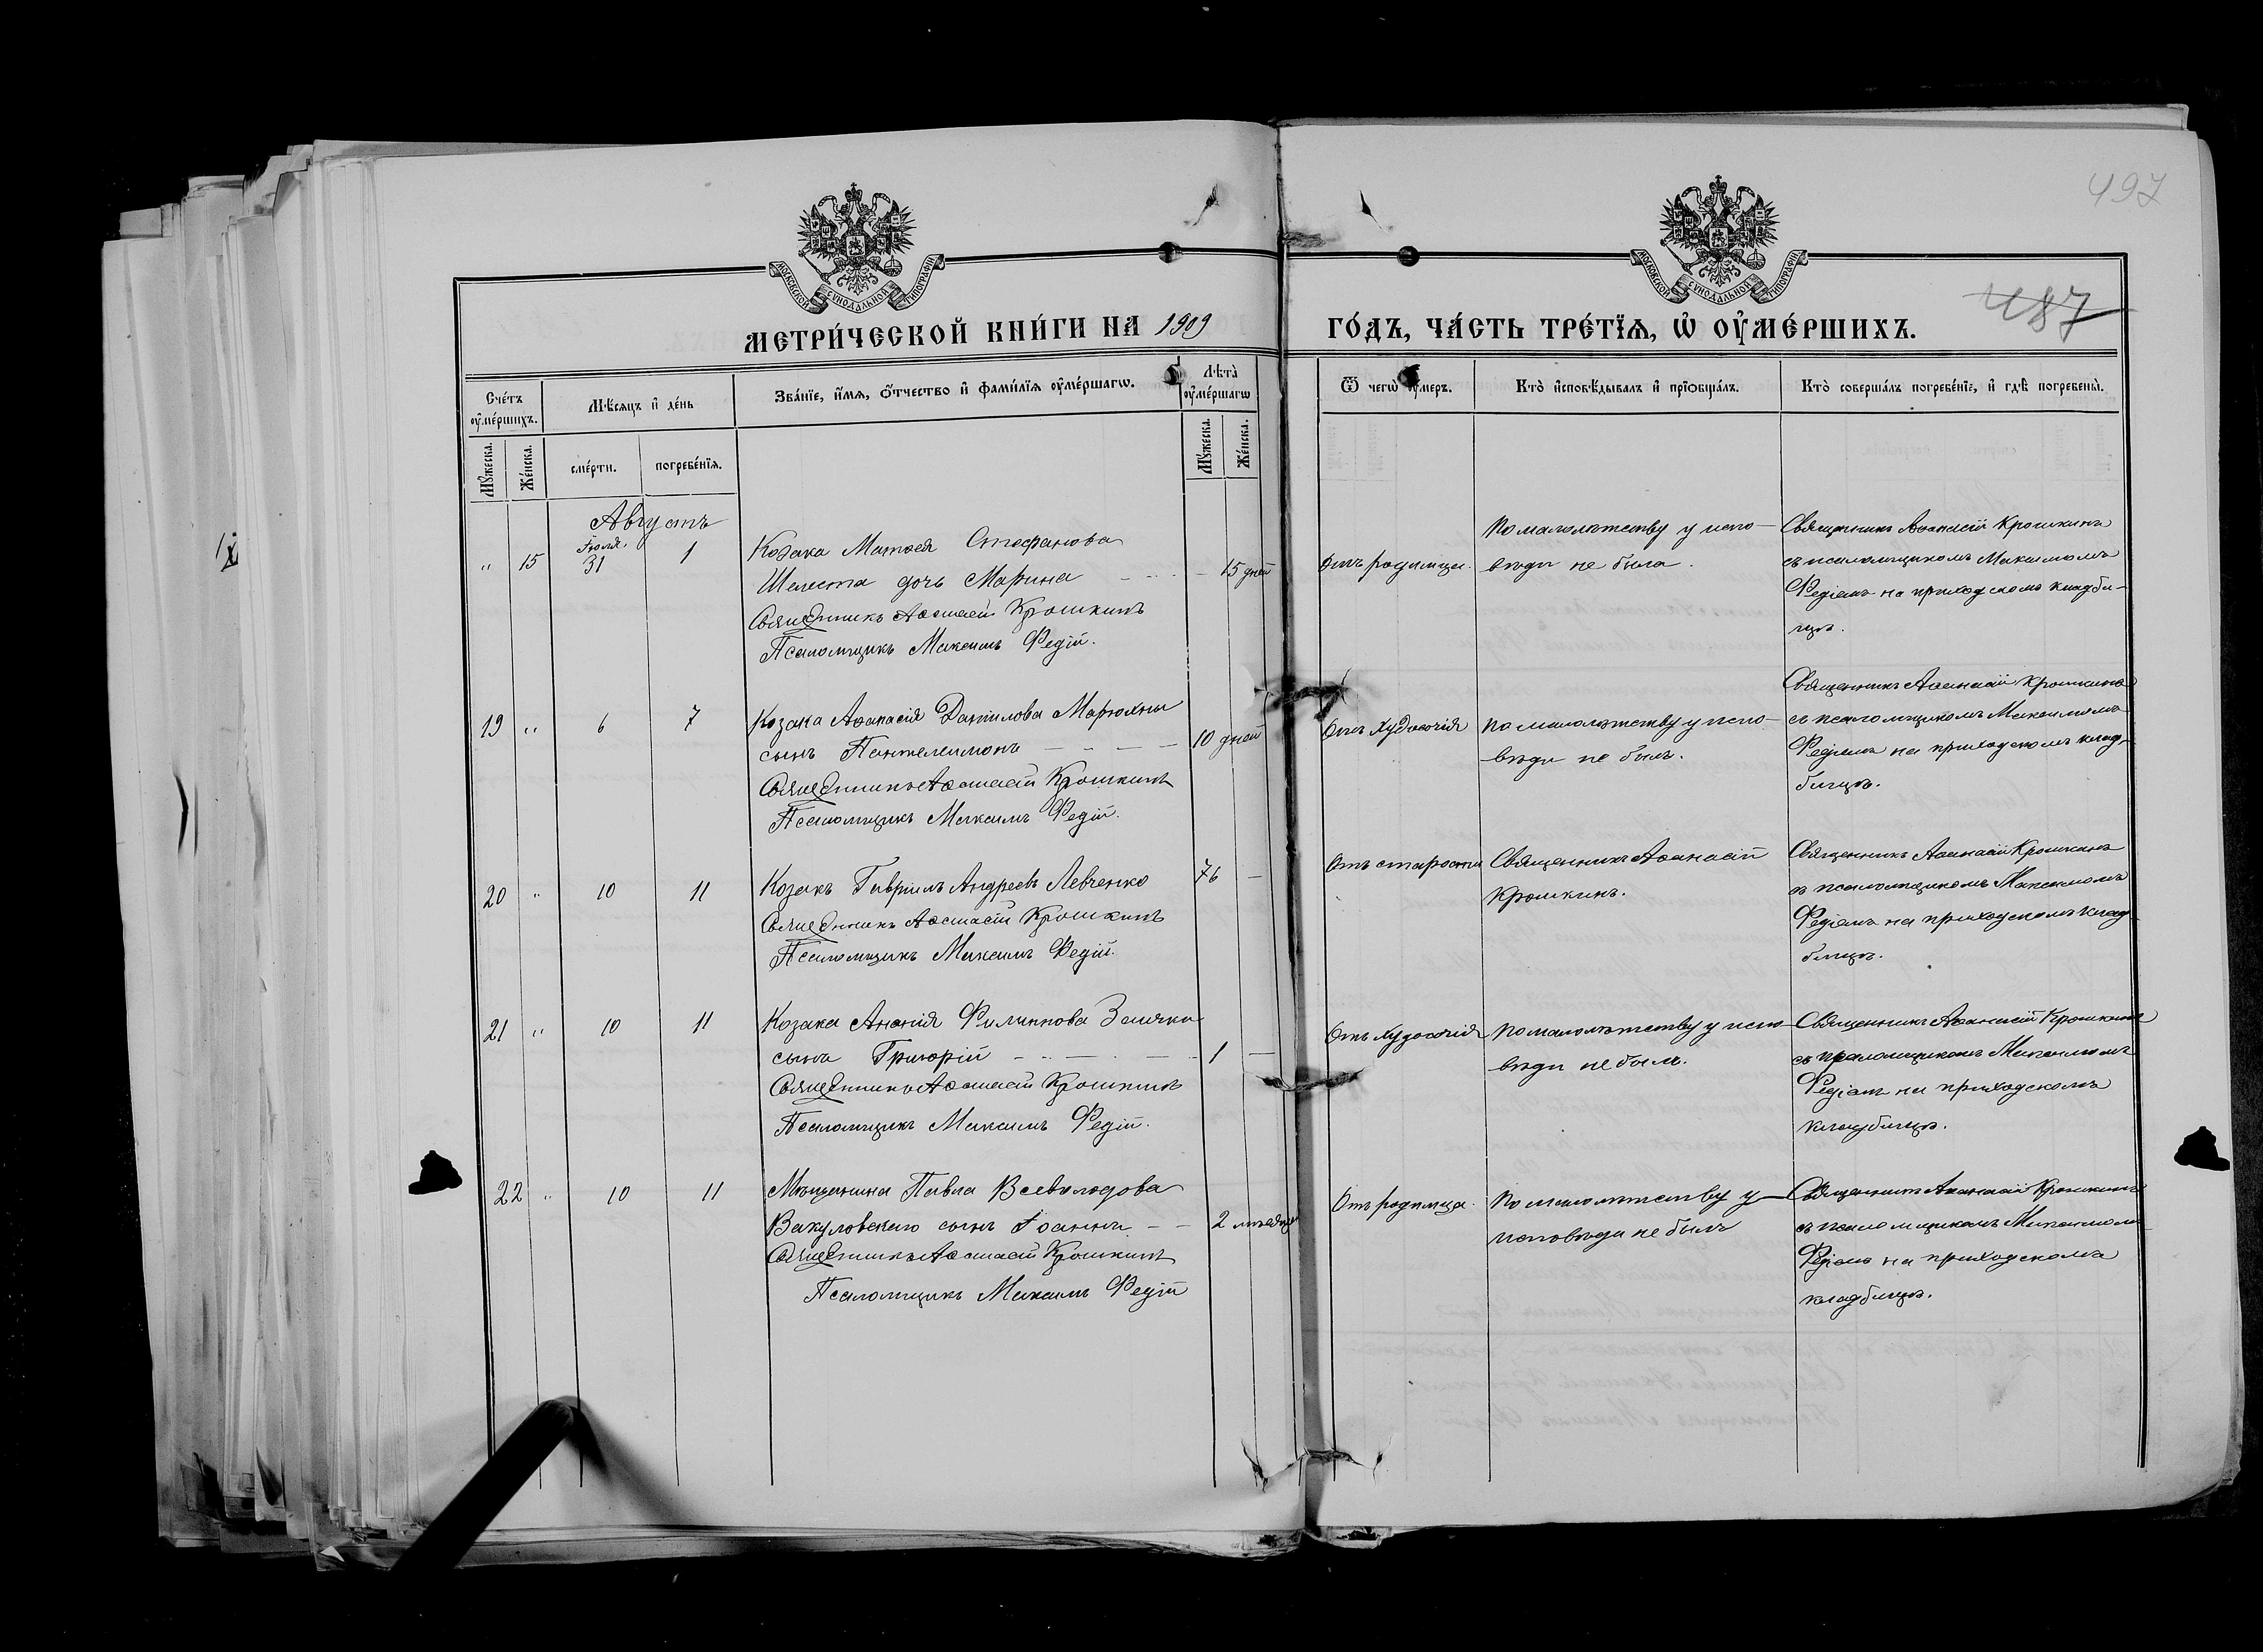 497
487
МОСКОВСКОЙ СѴНОДАЛЬНОЙ ТИПОГРАФІИ
МОСКОВСКОЙ СѴНОДАЛЬНОЙ ТИПОГРАФІИ
МЕТРИ́ЧЕСКОЙ КНИ́ГИ НА 1909
ГО́ДЪ, ЧА́СТЬ ТРЕ́ТЇѦ, Ѡ҆ ОУ҆МЕ́РШИХЪ.
Сче́тъ оу҆ме́ршихъ.
Мѣ́сяцъ и҆ де́нь
Зва́нїе, и҆́мѧ, ѻ҆́тчество и҆ фами́лїѧ оу҆ме́ршагѡ.
Лѣ́та оу҆ме́ршагѡ
Ѿ чегѡ̀ оу҆́меръ.
Кто̀ и҆сповѣ́дывалъ и҆ прїѡбща́лъ.
Кто̀ соверша́лъ погребе́нїе, и҆ гдѣ̀ погребены̀.
Мꙋ́жеска.
Же́нска.
сме́рти.
погребе́нїѧ.
Мꙋ́жеска.
Же́нска.
Августъ
" 15 Іюля. 31 1
Козака Матѳея Стефанова
Шелеста дочь Марина - - - 15 дней
Священникъ Аѳанасій Крошкинъ
Псаломщикъ Максимъ Федій.
Отъ родимца.
По малолѣтству у испо-
вѣди не была.
Священникъ Аѳанасій Крошкинъ
съ псаломщикомъ Максимомъ
Федіемъ на приходскомъ кладби-
щѣ.
19 " 6 7
Козака Аѳанасія Данилова Марюхны
сынъ Пантелеимонъ - - - - 10 дней
Священникъ Аѳанасій Крошкинъ
Псаломщикъ Максимъ Федій.
Отъ худосочія
По малолѣтству у испо-
вѣди не былъ.
Священникъ Аѳанасій Крошкинъ
съ псаломщикомъ Максимомъ
Федіемъ на приходскомъ клад-
бищѣ.
20 " 10 11
Козакъ Гавріилъ Андреевъ Левченко 76 -
Священникъ Аѳанасій Крошкинъ
Псаломщикъ Максимъ Федій.
Отъ старости
Священникъ Аѳанасій
Крошкинъ.
Священникъ Аѳанасій Крошкинъ
съ псаломщикомъ Максимомъ
Федіемъ на приходскомъ клад-
бищѣ.
21 " 10 11
Козака Ананія Филиппова
сынъ Григорій - - - - 1 -
Священникъ Аѳанасій Крошкинъ
Псаломщикъ Максимъ Федій.
Отъ худосочія
По малолѣтству у испо-
вѣди не былъ.
Священникъ Аѳанасій Крошкинъ
съ псаломщикомъ Максимомъ
Федіемъ на приходскомъ
кладбищѣ.
22 " 10 11
Мѣщанина Павла Всеволодова
Вакуловскаго сынъ Іоаннъ - - 2 мѣсяца
Священникъ Аѳанасій Крошкинъ
Псаломщикъ Максимъ Федій
Отъ родимца.
По малолѣтству у
исповѣди не былъ
Священникъ Аѳанасій Крошкинъ
съ псаломщикомъ Максимомъ
Федіемъ на приходскомъ
кладбищѣ.